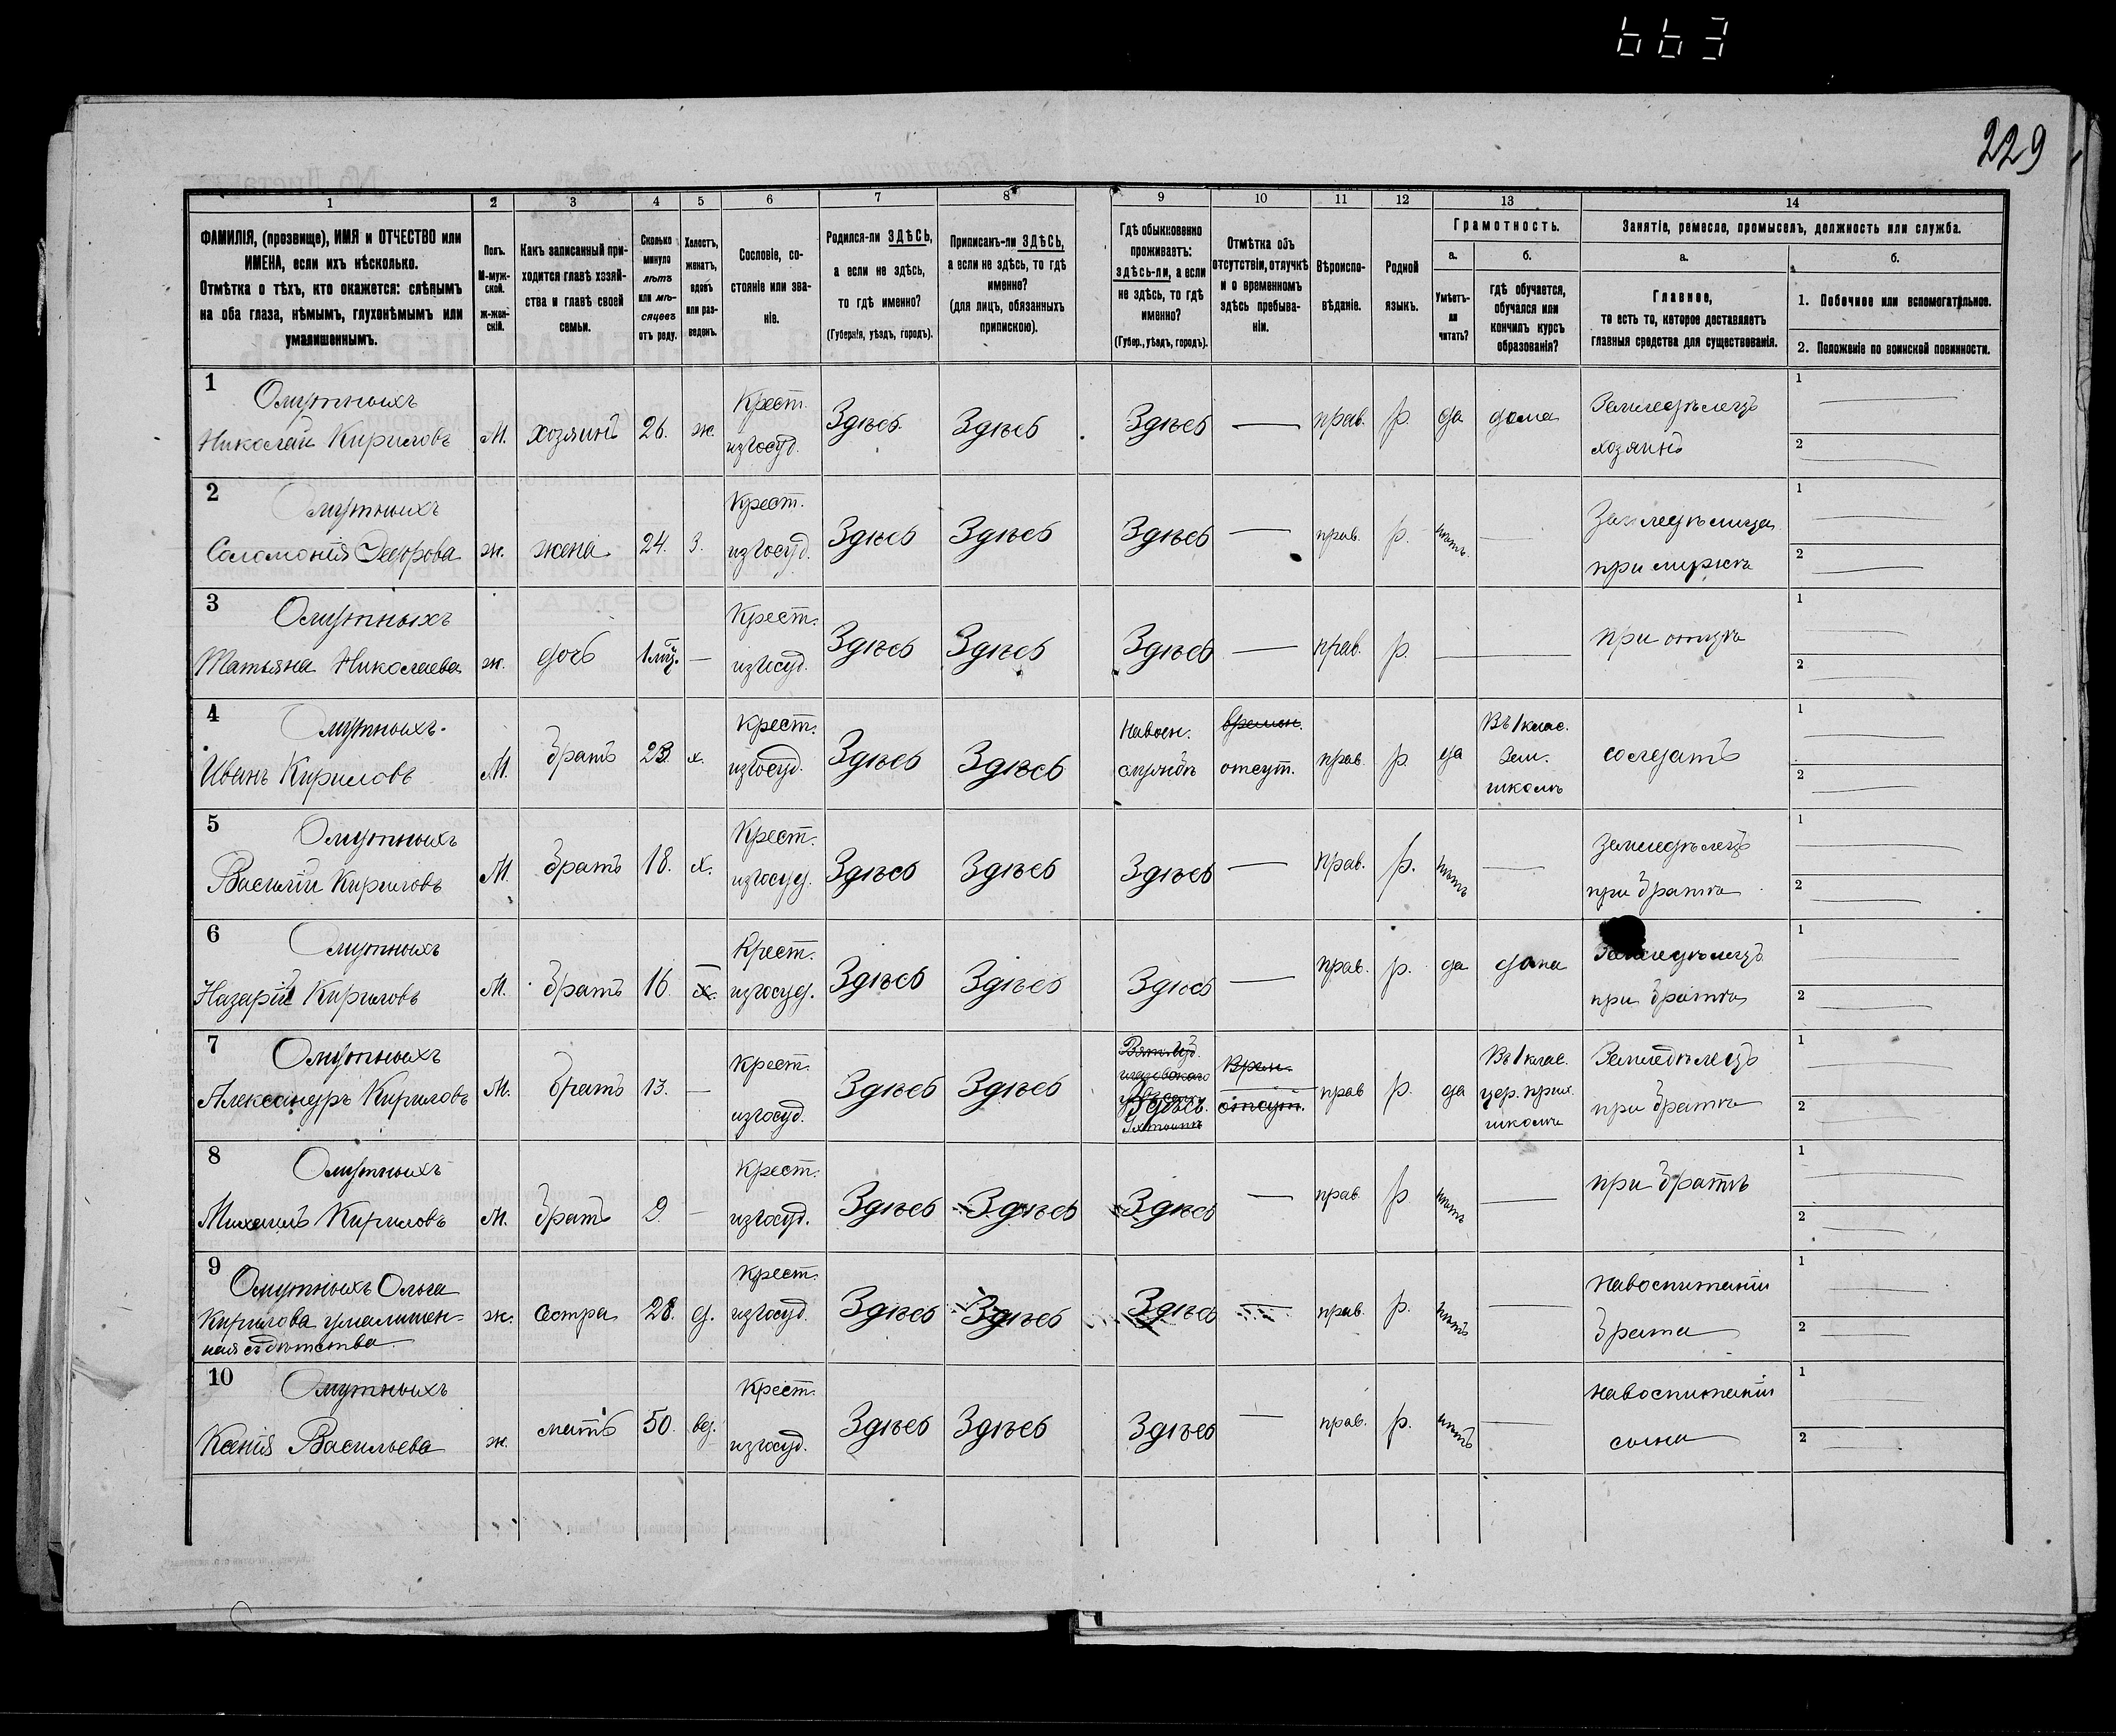 663
229
1
2
3
4
5
6
7
8
9
10
11
12
13
14
ФАМИЛІЯ, (прозвище), ИМЯ и ОТЧЕСТВО или
ИМЕНА, если ихъ нѣсколько.
Отмѣтка о тѣхъ, кто окажется: слѣпымъ
на оба глаза, нѣмымъ, глухонѣмымъ или
умалишеннымъ.
Полъ.
М-муж-
ской.
Ж-жен-
скій.
Какъ записанный при-
ходится главѣ хозяй-
ства и главѣ своей
семьи.
Сколько
минуло
лѣтъ
или мѣ-
сяцевъ
отъ роду.
Холостъ,
женатъ,
вдовъ
или раз-
веденъ.
Сословіе, со-
стояніе или зва-
ніе.
Родился-ли ЗДѢСЬ,
а если не здѣсь,
то гдѣ именно?
(Губернія, уѣздъ, городъ).
Приписанъ-ли ЗДѢСЬ,
а если не здѣсь, то гдѣ
именно?
(для лицъ, обязанныхъ
припискою).
Гдѣ обыкновенно
проживаетъ:
здѣсь-ли, а если
не здѣсь, то гдѣ
именно?
(Губер., уѣздъ, городъ).
Отмѣтка объ
отсутствіи, отлучкѣ
и о временномъ
здѣсь пребыва-
ніи.
Вѣроиспо-
вѣданіе.
Родной
языкъ.
Грамотность.
а.
Умѣетъ-
ли
читать?
б.
гдѣ обучается,
обучался или
кончилъ курсъ
образованія?
Занятіе, ремесло, промыселъ, должность или служба.
а.
Главное,
то есть то, которое доставляетъ
главныя средства для существованія.
б.
1. Побочное или вспомогательное.
2. Положеніе по воинской повинности.
1 Омутныхъ
Николай Кириловъ М. хозяинъ 26. ж. Крест. из госуд. Здѣсь Здѣсь Здѣсь — прав. р. да дома Земледѣлецъ хозяинъ 1 — 2 —
2 Омутныхъ
Соломонія Ж. жена 24. З. Крест. из госуд. Здѣсь Здѣсь Здѣсь — прав. р. нѣтъ. — Земледѣлица при мужѣ 1 — 2 —
3 Омутныхъ
Татьяна Николаева ж. дочь 1 мц. — Крест. из госуд. Здѣсь Здѣсь Здѣсь — прав. р. — — при отцѣ 1 — 2 —
4 Омутныхъ.
Иванъ Кириловъ М. братъ 23. х. Крест. из госуд. Здѣсь Здѣсь На воен. службѣ времен. отсут. прав р. да Въ 1 клас. Зем. школѣ солдатъ 1 — 2 —
5 Омутныхъ
Василій Кириловъ М. братъ 18. х. Крест. из госуд. Здѣсь Здѣсь Здѣсь — прав. р. нѣтъ — Земледѣлецъ при братѣ 1 — 2 —
6 Омутныхъ
Назарій Кириловъ М. братъ 16 х. Крест. из госуд. Здѣсь Здѣсь Здѣсь — прав. р. да дома Земледѣлецъ при братѣ 1 — 2 —
7 Омутныхъ
Александръ Кириловъ М. братъ 13. — Крест. из госуд. Здѣсь Здѣсь Здѣсь. Врем. отсут. прав р. да Въ 1 клас. цер. прих. школѣ Земледѣлецъ при братѣ 1 — 2 —
8 Омутныхъ
Михаилъ Кириловъ М. братъ 9. — Крест. из госуд. Здѣсь Здѣсь Здѣсь — прав. р. нѣтъ — при братѣ 1 — 2 —
9 Омутныхъ Ольга
Кирилова умалишен-
ная съ дѣтства. ж. сестра 28. д. Крест. из госуд. Здѣсь Здѣсь Здѣсь — прав. р. нѣтъ — на воспитаніи брата 1 — 2 —
10 Омутныхъ
Ксенія Васильева ж. мать 50. вд. Крест. из госуд. Здѣсь Здѣсь Здѣсь — прав. р. нѣтъ — на воспитаніи сына 1 — 2 —